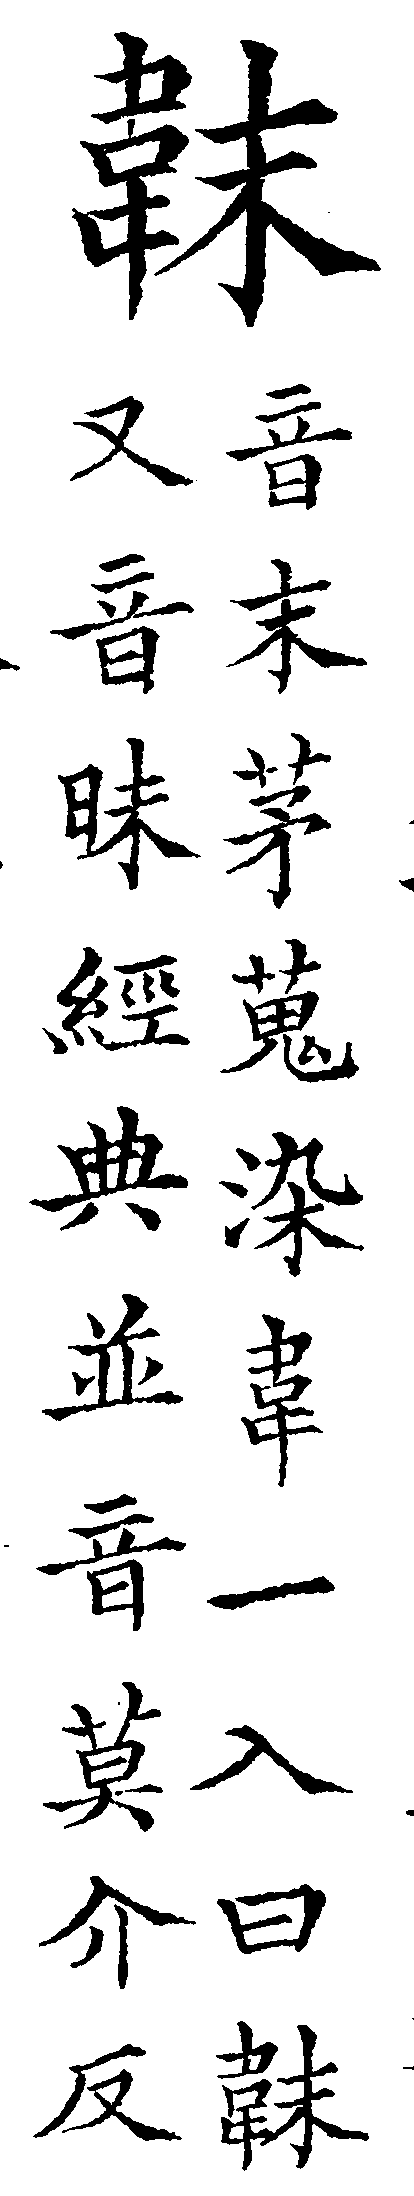 韎
音末茅蒐染韋一入曰韎
又音昧經典並音莫介反